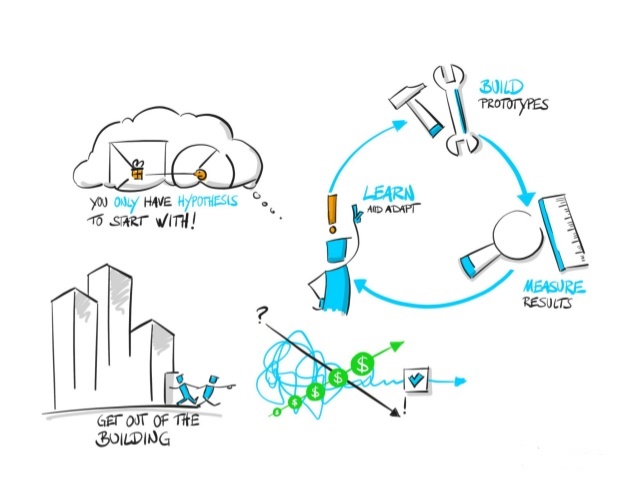 YOU ONLY HAVE HYPOTHESIS
TO START WITH!
BUILD
PROTOTYPES
LEARN
AND ADAPT
MEASURE
RESULTS
GET OUT OF THE
BUILDING
?
$ $ $ $ $
!